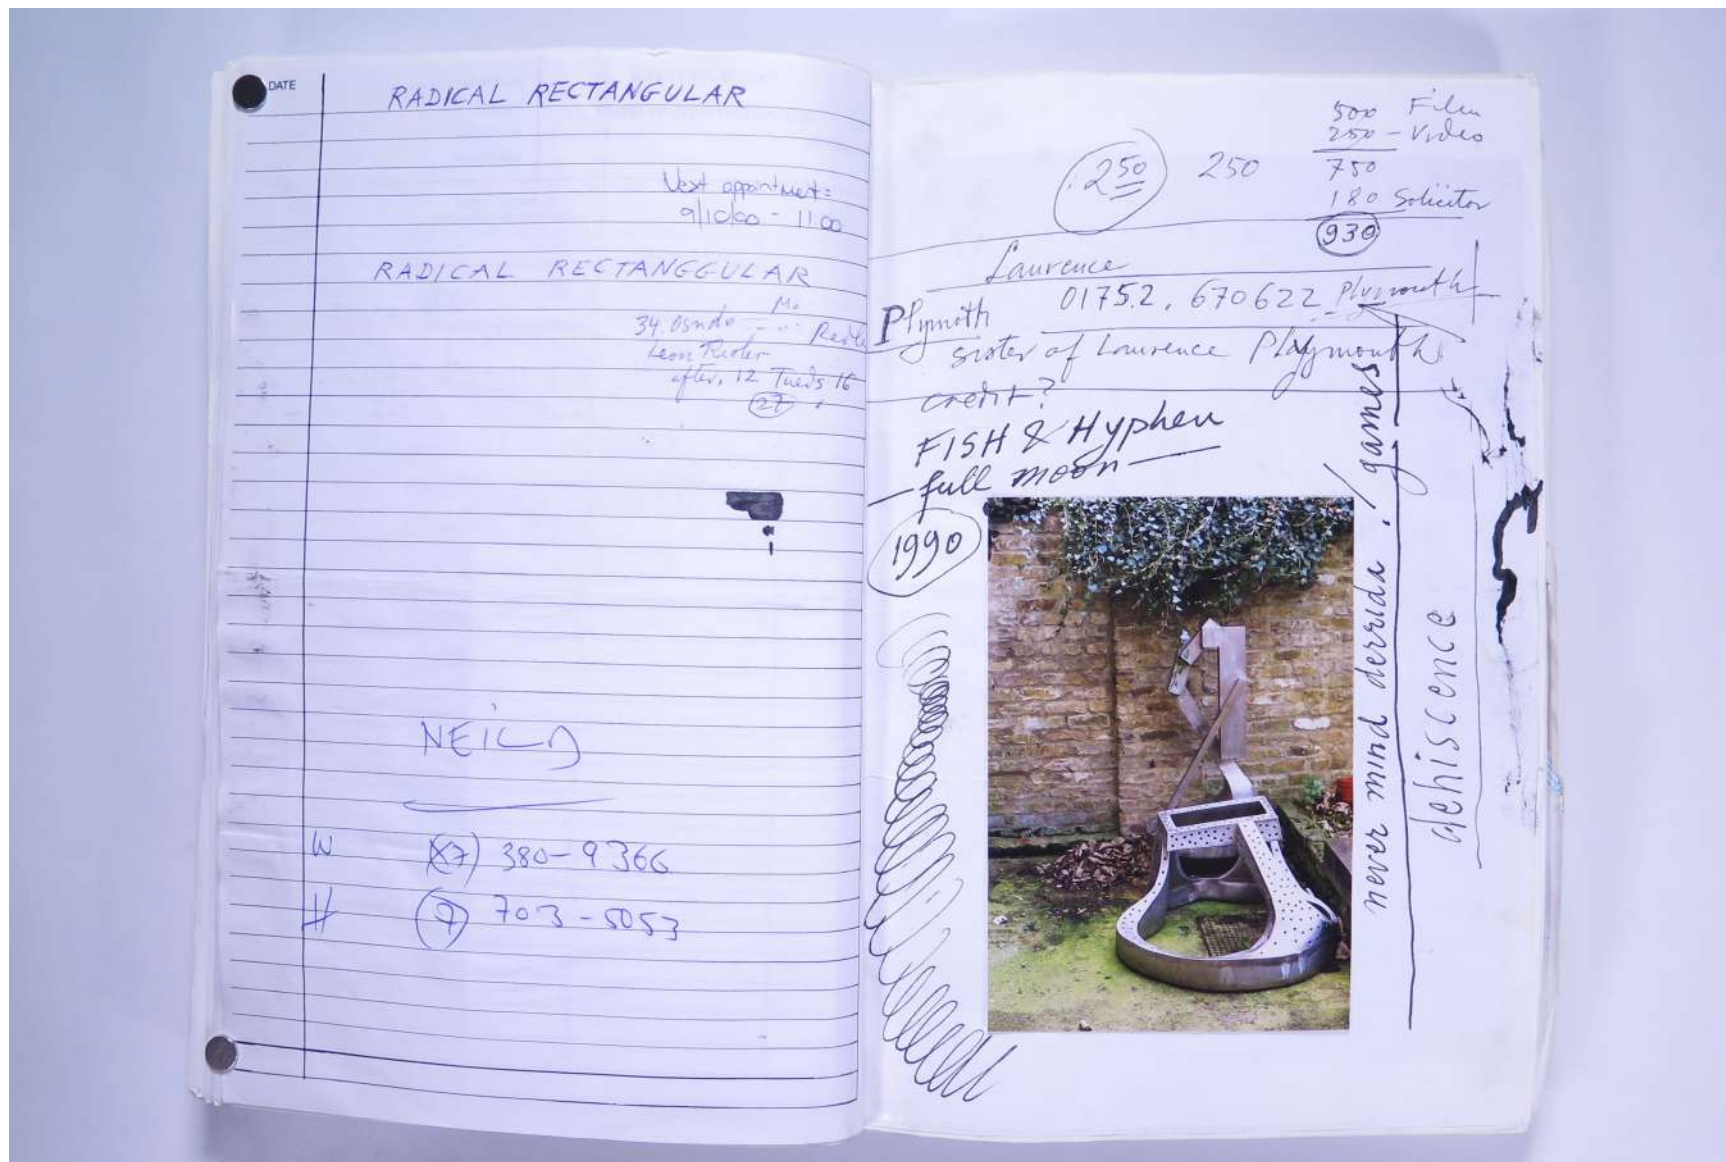 DATE
RADICAL RECTANGULAR
Next appointment:
9/10/00 - 11:00
RADICAL RECTANGGULAR
34.
Leon
after. 12 Tueds 16
27
NEIL
W 380-9366
H 703-5053
500 Film
250 - Video
250 250 750
180 Solicitor
930
Laurence
01752. 670622 Plymouth
Plymoth
sister of Laurence Playmouth
credit?
FISH & Hyphen
full moon
1990
never mind derrida! games
dehiscence